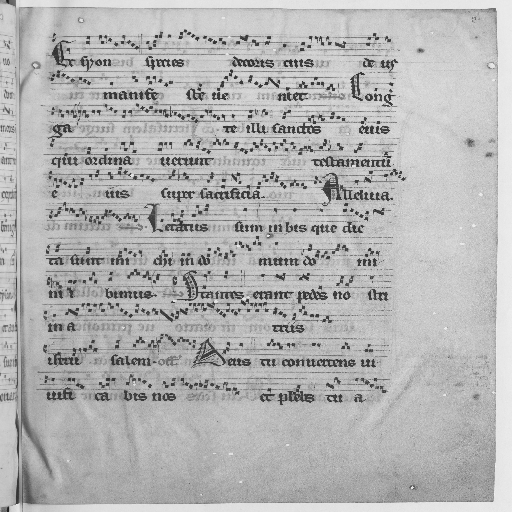 Ex syon species decoris eius de us
manifeste ue niet Cong
ga te illi sanctos eius
qui ordina uerunt testamentū
e ius super sacrificia. Alleluia.
Letatus sum in his que dic
ta sunt mi chi in do mum do mi
ni bimus Stantes erant pedes no stri
in a triis
salem off. Deus tu conuertens ui
uifi ca bis nos et plebs tu a